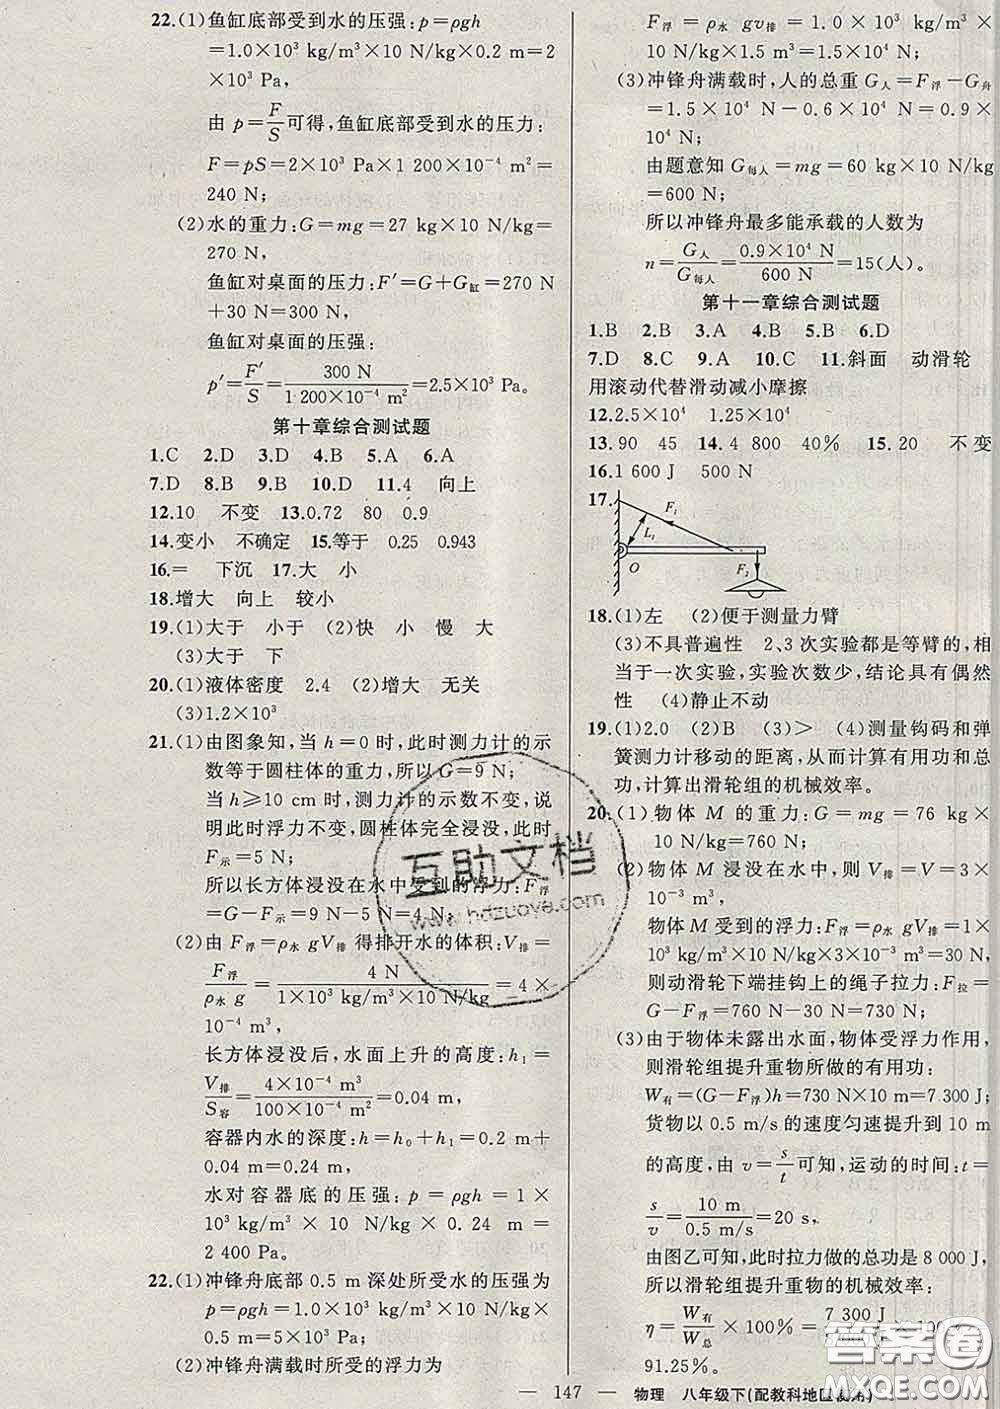 22.(1)鱼缸底部受到水的压强:p=ρgh
=1.0×10³ kg/m³×10 N/kg×0.2 m=2
×10³ Pa,
由 p=F/S可得,鱼缸底部受到水的压力:
F=pS=2×10³ Pa×1 200×10⁻⁴ m²=
240 N;
(2)水的重力:G=mg=27 kg×10 N/kg=
270 N,
鱼缸对桌面的压力:F′=G+G缸=270 N
+30 N=300 N,
鱼缸对桌面的压强:
p′=F′/S=300 N/(1 200×10⁻⁴ m²)=2.5×10³ Pa。
第十章综合测试题
1.C 2.D 3.D 4.B 5.A 6.A
7.D 8.B 9.D 10.D 11.4 向上
12.10 不变 13.0.72 80 0.9
14.变小 不确定 15.等于 0.25 0.943
16.= 下沉 17.大 小
18.增大 向上 较小
19.(1)大于 小于 (2)快 小 慢 大
(3)大于 下
20.(1)液体密度 2.4 (2)增大 无关
(3)1.2×10³
21.(1)由图象知,当 h=0时,此时测力计的示
数等于圆柱体的重力,所以G=9 N;
当 h≥10 cm时,测力计的示数不变,说
明此时浮力不变,圆柱体完全浸没,此时
F示=5 N;
所以长方体浸没在水中受到的浮力:F浮
=G-F示=9 N-5 N=4 N;
(2)由 F浮=ρ水 gV排 得排开水的体积:V排=
F浮/(ρ水 g)=4 N/(1×10³ kg/m³×10 N/kg)=4×
10⁻⁴ m³,
长方体浸没后,水面上升的高度:h₁=
V排/S容=(4×10⁻⁴ m³)/(100×10⁻⁴ m²)=0.04 m,
容器内水的深度:h=h₀+h₁=0.2 m+
0.04 m=0.24 m,
水对容器底的压强:p=ρgh=1×
10³ kg/m³ × 10 N/kg × 0.24 m=
2 400 Pa。
22.(1)冲锋舟底部 0.5 m深处所受水的压强为
p=ρgh=1.0×10³ kg/m³×10 N/kg×
0.5 m=5×10³ Pa;
(2)冲锋舟满载时所受的浮力为
F浮=ρ水 gv排=1.0×10³ kg/m³×
10 N/kg×1.5 m³=1.5×10⁴ N;
(3)冲锋舟满载时,人的总重 G人=F浮-G舟
=1.5×10⁴ N-0.6×10⁴ N=0.9×
10⁴ N;
由题意知G每人=mg=60 kg×10 N/kg
=600 N;
所以冲锋舟最多能承载的人数为
n=G人/G每人=(0.9×10⁴ N)/(600 N)=15(人)。
第十一章综合测试题
1.B 2.B 3.A 4.B 5.B 6.D
7.D 8.C 9.A 10.C 11.斜面 动滑轮
用滚动代替滑动减小摩擦
12.2.5×10⁴ 1.25×10⁴
13.90 45 14.4 800 40% 15.20 不变
16.1 600 J 500 N
17.
F₁
L₁
O
F₂
18.(1)左 (2)便于测量力臂
(3)不具普遍性 2、3次实验都是等臂的,相
当于一次实验,实验次数少,结论具有偶然
性 (4)静止不动
19.(1)2.0 (2)B (3)> (4)测量钩码和弹
簧测力计移动的距离,从而计算有用功和总
功,计算出滑轮组的机械效率。
20.(1)物体 M 的重力:G=mg=76 kg×
10 N/kg=760 N;
(2)物体 M 浸没在水中,则 V排=V=3×
10⁻³ m³,
物体M受到的浮力:F浮=ρ水 gV排=1×
10³ kg/m³×10 N/kg×3×10⁻³ m³=30 N,
则动滑轮下端挂钩上的绳子拉力:F拉=
G-F浮=760 N-30 N=730 N;
(3)由于物体未露出水面,物体受浮力作用,
则滑轮组提升重物所做的有用功:
W有=(G-F浮)h=730 N×10 m=7 300 J;
货物以 0.5 m/s 的速度匀速提升到 10 m
的高度,由 v=s/t可知,运动的时间:t=
s/v=10 m/(0.5 m/s)=20 s,
由图乙可知,此时拉力做的总功是 8 000 J;
所以滑轮组提升重物的机械效率:
η=W有/W总×100%=7 300 J/8 000 J×100%=
91.25%。
— 147 — 物理 八年级下(配教科地区使用)
互助文档
www.hdzuoye.com
答案圈
MXQE.COM